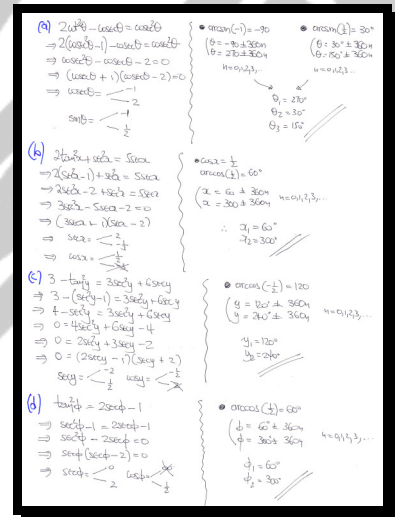 (a) 2cot²θ - cosecθ = cosec²θ
⇒ 2(cosec²θ - 1) - cosecθ = cosec²θ
⇒ cosec²θ - cosecθ - 2 = 0
⇒ (cosecθ + 1)(cosecθ - 2) = 0
⇒ cosecθ = -1
2
sinθ = -1
1/2
• arcsin(-1) = -90
(θ = -90 ± 360n
(θ = 270 ± 360n
n = 0,1,2,3,...
• arcsin(1/2) = 30°
(θ = 30° ± 360n
(θ = 150° ± 360n
n = 0,1,2,3,...
θ₁ = 270°
θ₂ = 30°
θ₃ = 150°
(b) 2tan²x + sec²x = 5secx
⇒ 2(sec²x - 1) + sec²x = 5secx
⇒ 2sec²x - 2 + sec²x = 5secx
⇒ 3sec²x - 5secx - 2 = 0
⇒ (3secx + 1)(secx - 2)
⇒ secx = 2
-1/3
⇒ cosx = 1/2
• cosx = 1/2
arccos(1/2) = 60°
(x = 60 ± 360n
(x = 300 ± 360n
n = 0,1,2,3,...
∴ x₁ = 60°
x₂ = 300°
(c) 3 - tan²y = 3sec²y + 6secy
⇒ 3 - (sec²y - 1) = 3sec²y + 6secy
⇒ 4 - sec²y = 3sec²y + 6secy
⇒ 0 = 4sec²y + 6secy - 4
⇒ 0 = 2sec²y + 3secy - 2
⇒ 0 = (2secy - 1)(secy + 2)
secy = -2
1/2
cosy = -1/2
• arccos(-1/2) = 120
(y = 120° ± 360n
(y = 240° ± 360n
n = 0,1,2,3,...
y₁ = 120°
y₂ = 240°
(d) tan²φ = 2secφ - 1
⇒ sec²φ - 1 = 2secφ - 1
⇒ sec²φ - 2secφ = 0
⇒ secφ(secφ - 2) = 0
⇒ secφ = 0
2
cosφ =
1/2
• arccos(1/2) = 60°
(φ = 60° ± 360n
(φ = 300° ± 360n
n = 0,1,2,3,...
φ₁ = 60°
φ₂ = 300°